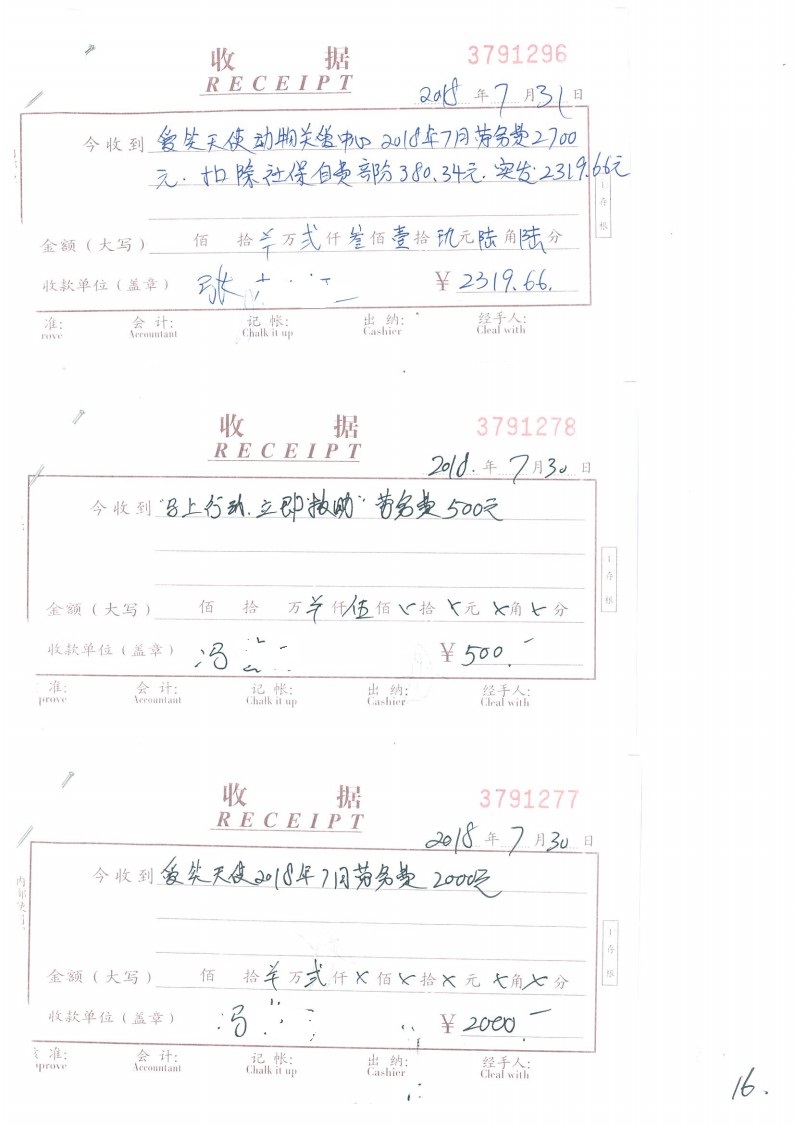 收 据 3791296
RECEIPT
2018 年 7 月 31 日
今收到 爱笑天使动物关爱中心 2018年7月劳务费2700
元.扣除社保自费部分380.34元.实发2319.66元
金额（大写） 佰 拾 羊 万 弍 仟 叁 佰 壹 拾 玖 元 陆 角 陆 分
收款单位（盖章） 张 ￥ 2319.66.
准: 会 计: 记 帐: 出 纳: 经手人:
rove Accountant Chalk it up Cashier Cleal with
1
存
根
收 据 3791278
RECEIPT
2018. 年 7 月 30 日
今收到 "马上行动.立即救助" 劳务费 500元
金额（大写） 佰 拾 万 羊 仟 伍 佰 x 拾 x 元 x 角 x 分
收款单位（盖章） 冯 ￥ 500.-
准: 会 计: 记 帐: 出 纳: 经手人:
prove Accountant Chalk it up Cashier Cleal with
1
存
根
收 据 3791277
RECEIPT
2018 年 7 月 30 日
今收到 爱笑天使2018年7月劳务费 2000元
金额（大写） 佰 拾 羊 万 弍 仟 x 佰 x 拾 x 元 x 角 x 分
收款单位（盖章） 冯 ￥ 2000.-
准: 会 计: 记 帐: 出 纳: 经手人:
prove Accountant Chalk it up Cashier Cleal with
1
存
根
16.